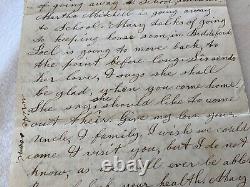 of going away to School
Martha Mitchell is going away
to School. Mary talks of going
to keeping house soon in Biddeford
Joel is going to move back, to
the point before long. Sis sends
her love, I says she shall
be glad, when you come home.
She says she would like to come
out their. Give my love your
Uncle, & family, I wish we could
come & visit you, but I do not
know, as I shall ever be able
your health, Mary